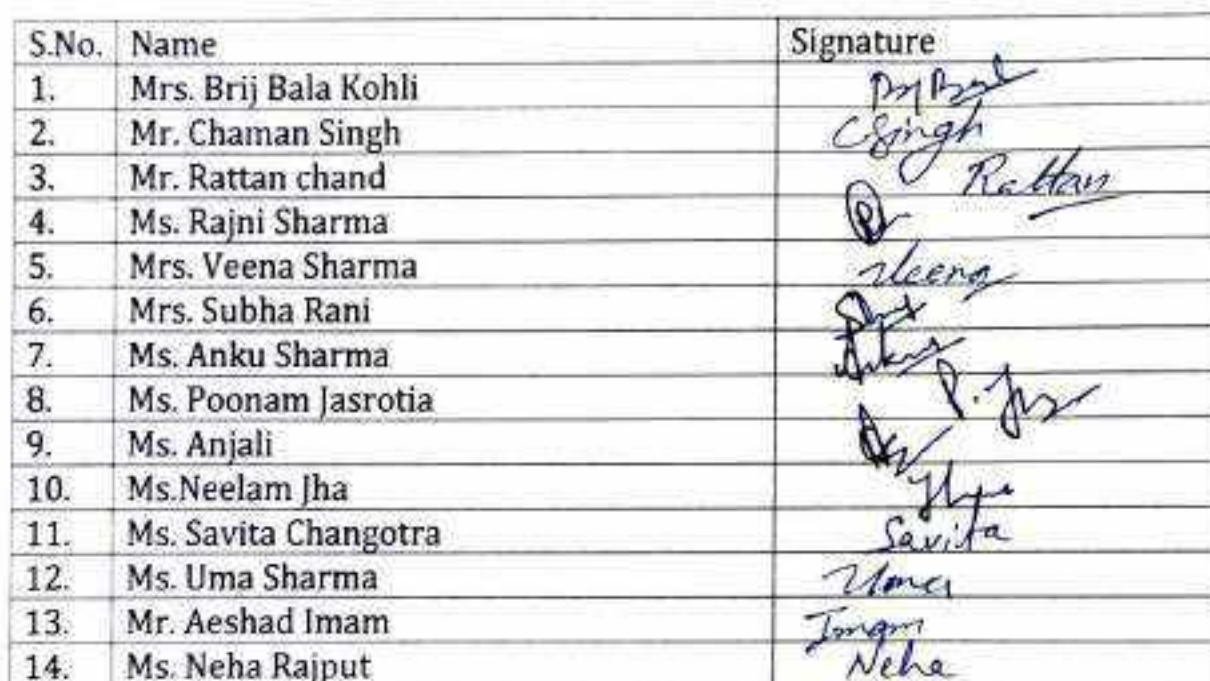 S.No. Name Signature
1. Mrs. Brij Bala Kohli
2. Mr. Chaman Singh CSingh
3. Mr. Rattan chand Rattan
4. Ms. Rajni Sharma
5. Mrs. Veena Sharma Veena
6. Mrs. Subha Rani
7. Ms. Anku Sharma Anku
8. Ms. Poonam Jasrotia
9. Ms. Anjali
10. Ms.Neelam Jha
11. Ms. Savita Changotra Savita
12. Ms. Uma Sharma Uma
13. Mr. Aeshad Imam Imam
14. Ms. Neha Rajput Neha